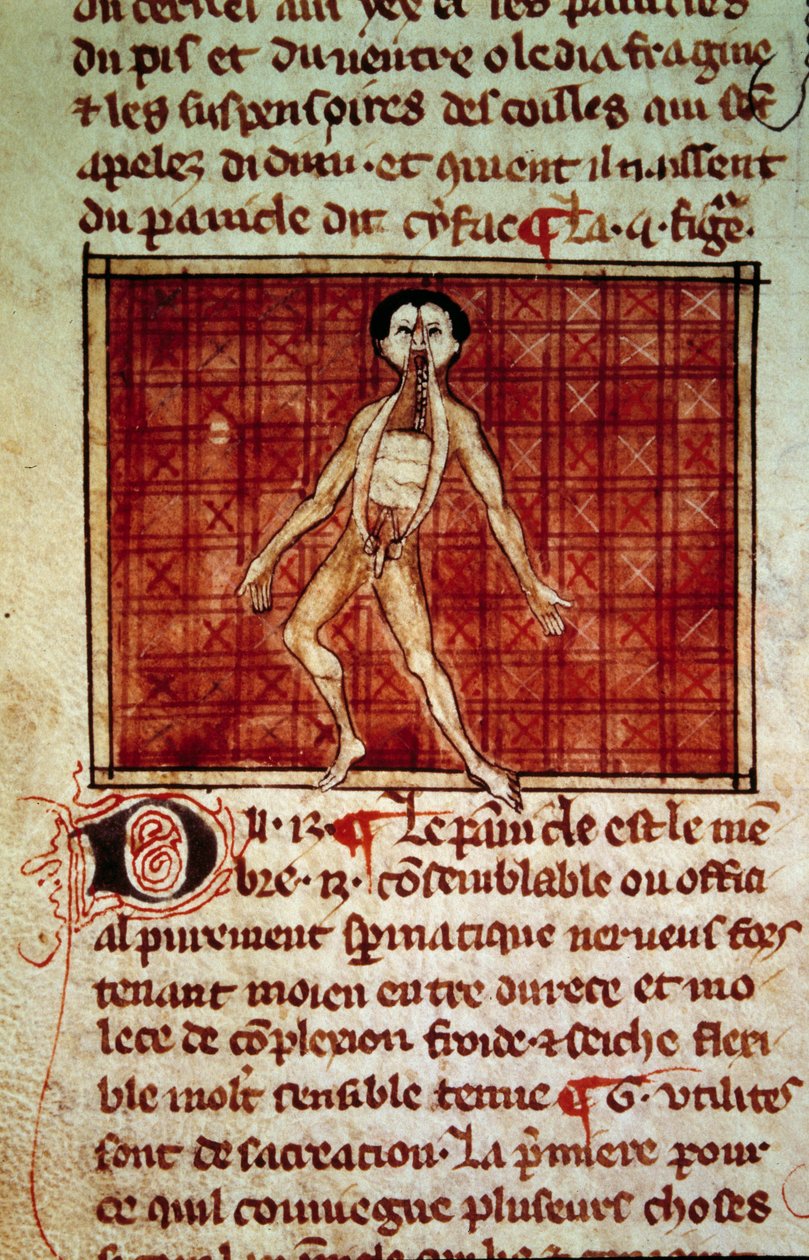 du cervel aui yex et les panicles
du pis et du uentre o le diafragme
⁊ les suspensoires des coilles qui sōt
apelez didimi · et quient il naissent
du panicle dit cyfac ¶ La · 4 · figᵃe ·
Du · 12 · ¶ Le pāni cle est le mē
bre · 12 · cōsemblable ou offici
al purement spmatique nerueus fors
tenant moien entre durece et mo
lece de cōplexion froide · ⁊ seiche flexi
ble molt sensible tenue ¶ 6 · utilites
sont de sa creation · La pmiere pour
ce quil conuegne pluseurs choses